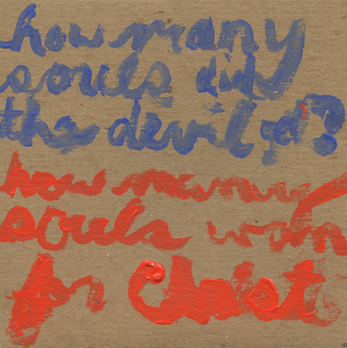 how many
souls did
the devil get?
how many
souls won
for Christ